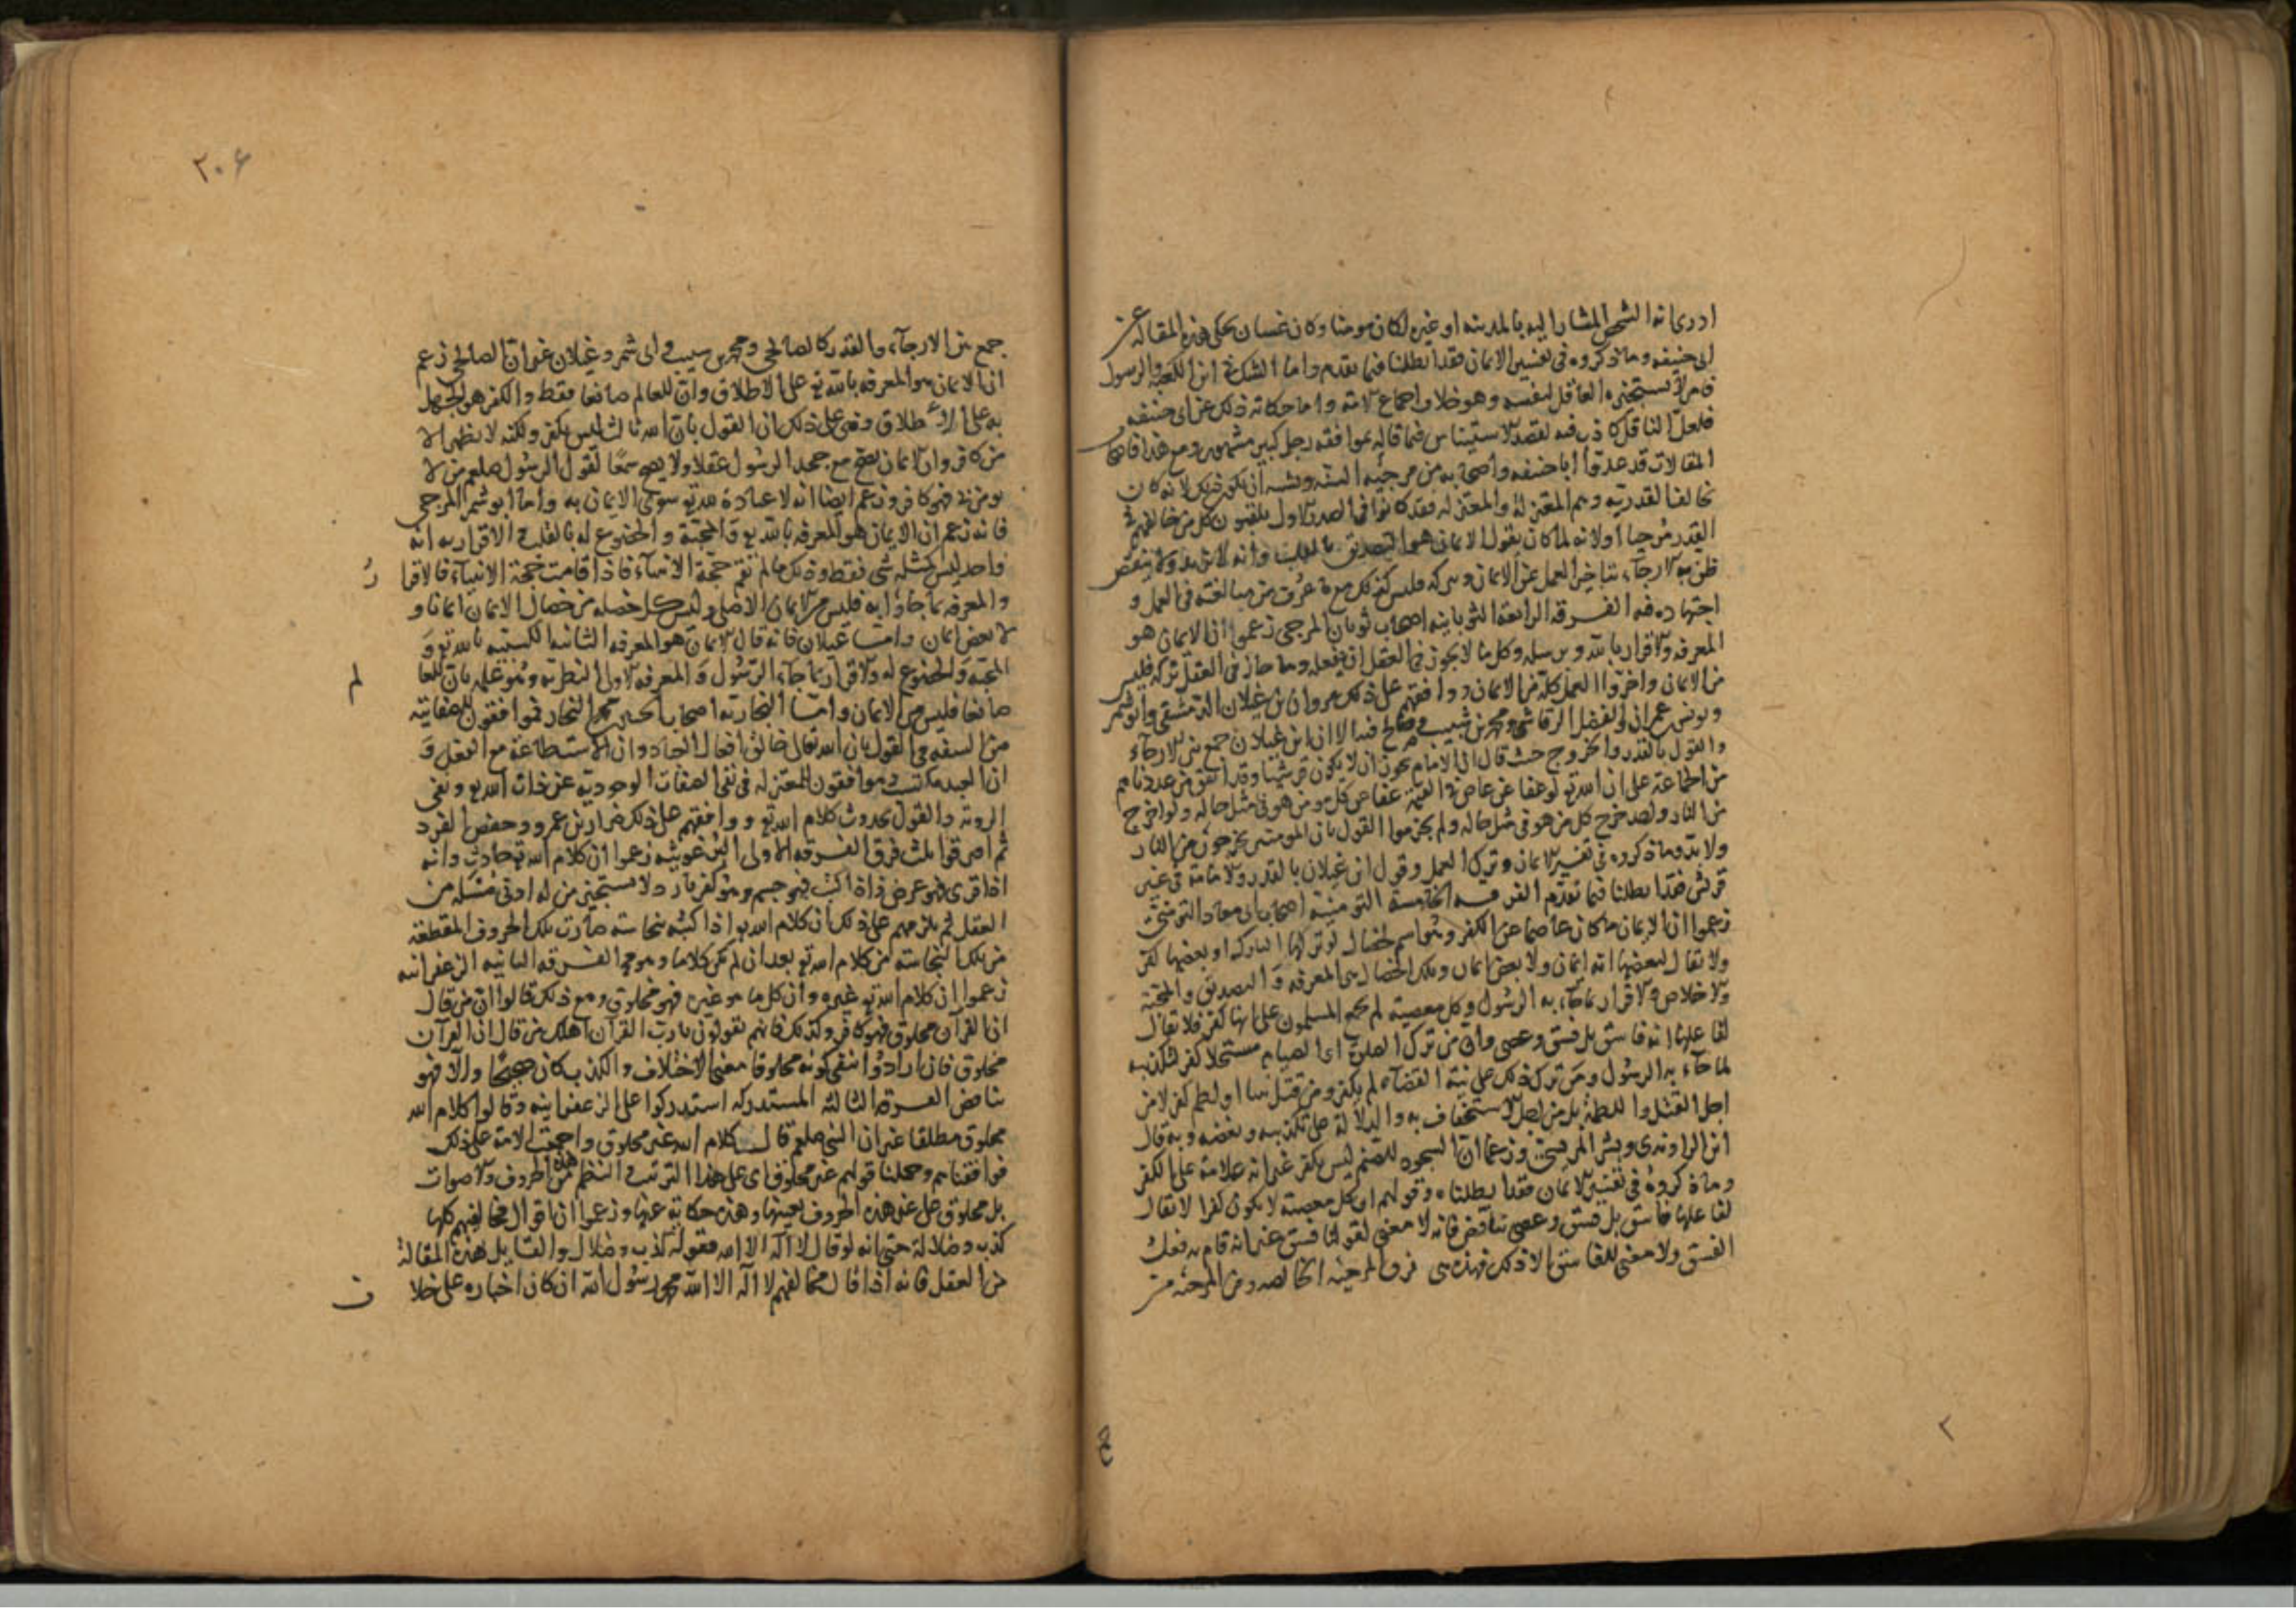 ادرى انه الشخص المشار اليه بالمدينه او غيره لكان مومنا وكان غسان يحكى هذه المقاله عن
ابى حنيفه وما ذكروه فى تفسير الايمان فقد ابطلناه فيما تقدم واما الشك فى ان الكعبه والرسول
فامر لا يستجيزه العاقل لنفسه وهو خلاف اجماع الامة واما حكاته ذلك عن ابى حنيفه
فلعل الناقل كاذب فيه لقصد الاستيناس فيما قاله بموافقه رجل كبير مشهور ومع هذا فاصحاب
المقالات قد عدوا ابا حنيفه واصحابه من مرجيه السنه ويشبه ان يكون ذلك لانه كان
مخالفا لقدريه وهم المعتزلة والمعتزله فقد كانوا فى الصدر الاول يلقبون كل من خالفهم فى
القدر مرجيا او لانه لما كان يقول الايمان هو التصديق بالقلب وانه لا يزيد ولا ينقص
ظن به الارجاء بتاخير العمل عن الايمان وتركه فليس كذلك مع ما عرف من مبالغته فى العمل و
اجتهاده فيه الفرقه الرابعة الثوبانيه اصحاب ثوبان المرجى زعموا ان الايمان هو
المعرفه والاقرار بالله وبرسله وكل ما لا يجوز فى العقل ان يفعله وما جاز فى العقل تركه فليس
من الايمان واخروا العمل كله من الايمان ووافقهم على ذلك مروان بن غيلان الدمشقى وابو شمر
ويونس بن عمران والفضل الرقاشى ومحمد بن شبيب وصالح قبه الا ان ابن غيلان جمع بين الارجاء
والقول بالقدر والخروج حيث قال ان الامام يجوز ان لا يكون قرشيا وقد اتفق من عددناهم
من الجماعة على ان الله تع لو عفا عن عاص فى القيمة عفا عن كل مومن هو فى مثل حاله ولو اخرج
من النار واحد اخرج كل من هو فى مثل حاله ولم يجزموا القول بان المومنين يخرجون من النار
ولا بد وما ذكروه فى تفسير الايمان وترك العمل وقول ابن غيلان بالقدر والامامة فى غير
قرشى فقد ابطلناه فيما تقدم الفرقه الخامسة التومنية اصحاب ابى معاذ التومنى
زعموا ان الايمان ما كان عاصما عن الكفر وهو اسم لخصال لو ترك لها التارك او بعضها كفر
ولا يقال لبعضها انه ايمان ولا بعض ايمان وتلك الخصال هى المعرفه و التصديق والمحبة
والاخلاص والاقرار بما جاء به الرسول وكل معصية لم يجمع المسلمون على انها كفر فلا يقال
لفاعلها انه فاسق بل فسق وعصى وان من ترك الصلوة او الصيام مستحلا كفر لتكذيبه
لما جاء به الرسول ومن ترك ذلك على نية القضاء لم يكفر ومن قتل نبيا او لطمه كفر لا من
اجل القتل واللطمة بل من اجل الاستخفاف به والدلالة على تكذيبه وبغضه وبه قال
ابن الراوندى وبشر المريسى وزعما ان السجود للصنم ليس بكفر غير انه علامة على الكفر
وما ذكروه فى تفسير الايمان فقد ابطلناه وقولهم ان كل معصية لا يكون كفرا لا يقال
لفاعلها فاسق بل فسق وعصى تناقض فانه لا معنى لقولنا فسق غير انه قام به فعل
الفسق ولا معنى للفاسق الا ذلك فهذه هى فرق المرجيه الخالصه ومن المرجئه من
٢
٢٠۶
جمع بين الارجاء والقدر كالصالحى ومحمد بن سبيب وابى شمر وغيلان غير ان الصالحى زعم
ان الايمان هو المعرفه بالله تع على الاطلاق وان للعالم صانعا فقط والكفر هو الجهل
به على الاطلاق وفرع على ذلك ان القول بان الله ثالث ثلثه ليس بكفر ولكنه لا يظهر الا
من كافر وان الايمان يصح مع جحد الرسول عقلا ولا يصح سمعا لقول الرسول صلعم من لا
يومن بى فهو كافر وزعم ايضا انه لا عبادة لله تع سوى الايمان به واما ابو شمر المرجى
فانه زعم ان الايمان هو المعرفه بالله تع والمحبة والخضوع له بالقلب والاقرار به انه
واحد ليس كمثله شى فقط وذلك ما لم تقم حجة الانبياء فاذا قامت حجة الانبياء فالاقرا ر
والمعرفه بما جاؤا به فليس من الايمان الاصلى وليس كل خصله من خصال الايمان ايمانا و
لا بعض ايمان واما غيلان فانه قال الايمان هو المعرفه الثانيه المكتسبه بالله تع و
المحبة والخضوع له والاقرار بما جاء به الرسول و المعرفه الاولى النظريه وهو علمه بان للعا لم
صانعا فليس من الايمان واما النجاريه اصحاب الحسين بن محمد النجار فموافقون للصفاتيه
من السنه فى القول بان الله تعالى خالق افعال العباد وان الاستطاعة مع الفعل و
ان العبد مكتسب وموافقون للمعتزله فى نفى الصفات الوجودية عن ذات الله تع ونفى
الرويه والقول بحدوث كلام الله تع ووافقهم على ذلك ضرار بن عمرو وحفص الفرد
ثم افترقوا ثلث فرق الفرقه الاولى البرغوثيه زعموا ان كلام الله تع حادث وانه
اذا قرى فهو عرض واذا كتب فهو جسم وهو كفر بارد لا يستجيزه من له ادنى مسكه من
العقل ثم يلزمهم على ذلك ان كلام الله تع اذا كتب بنجاسته صارت تلك الحروف المقطعة
من تلك النجاسته من كلام الله تع بعد ان لم تكن كلاما وهو محال الفرقه الثانيه الزعفرانيه
زعموا ان كلام الله تع غيره وان كل ما هو غيره فهو مخلوق ومع ذلك قالوا ان من قال
ان القرآن مخلوق فهو كافر ولذلك فانهم يقولون يا رب القرآن اهلك من قال ان القرآن
مخلوق فان ارادوا بنفى كونه مخلوقا معنى الاختلاف والكذب كان صحيحا والا فهو
تناقض الفرقه الثالثه المستدركه استدركوا على الزعفرانيه وقالوا كلام الله
مخلوق مطلقا غير ان النبى صلعم قال كلام الله غير مخلوق واجمعت الامة على ذلك
فوافقناهم وحملنا قولهم غير مخلوق اى على هذا الترتيب والنظم من هذه الحروف والاصوات
بل مخلوق على غير هذه الحروف بعينها وهذه حكاية عنها وزعموا ان اقوال مخالفيهم كلها
كذب وضلالة حتى انه لو قال لا اله الا الله فقوله كذب وضلال والقايل بهذه المقالة
من العقل فانه اذا قال مخالفهم لا اله الا الله محمد رسول الله ان كان اخباره على خلا ف